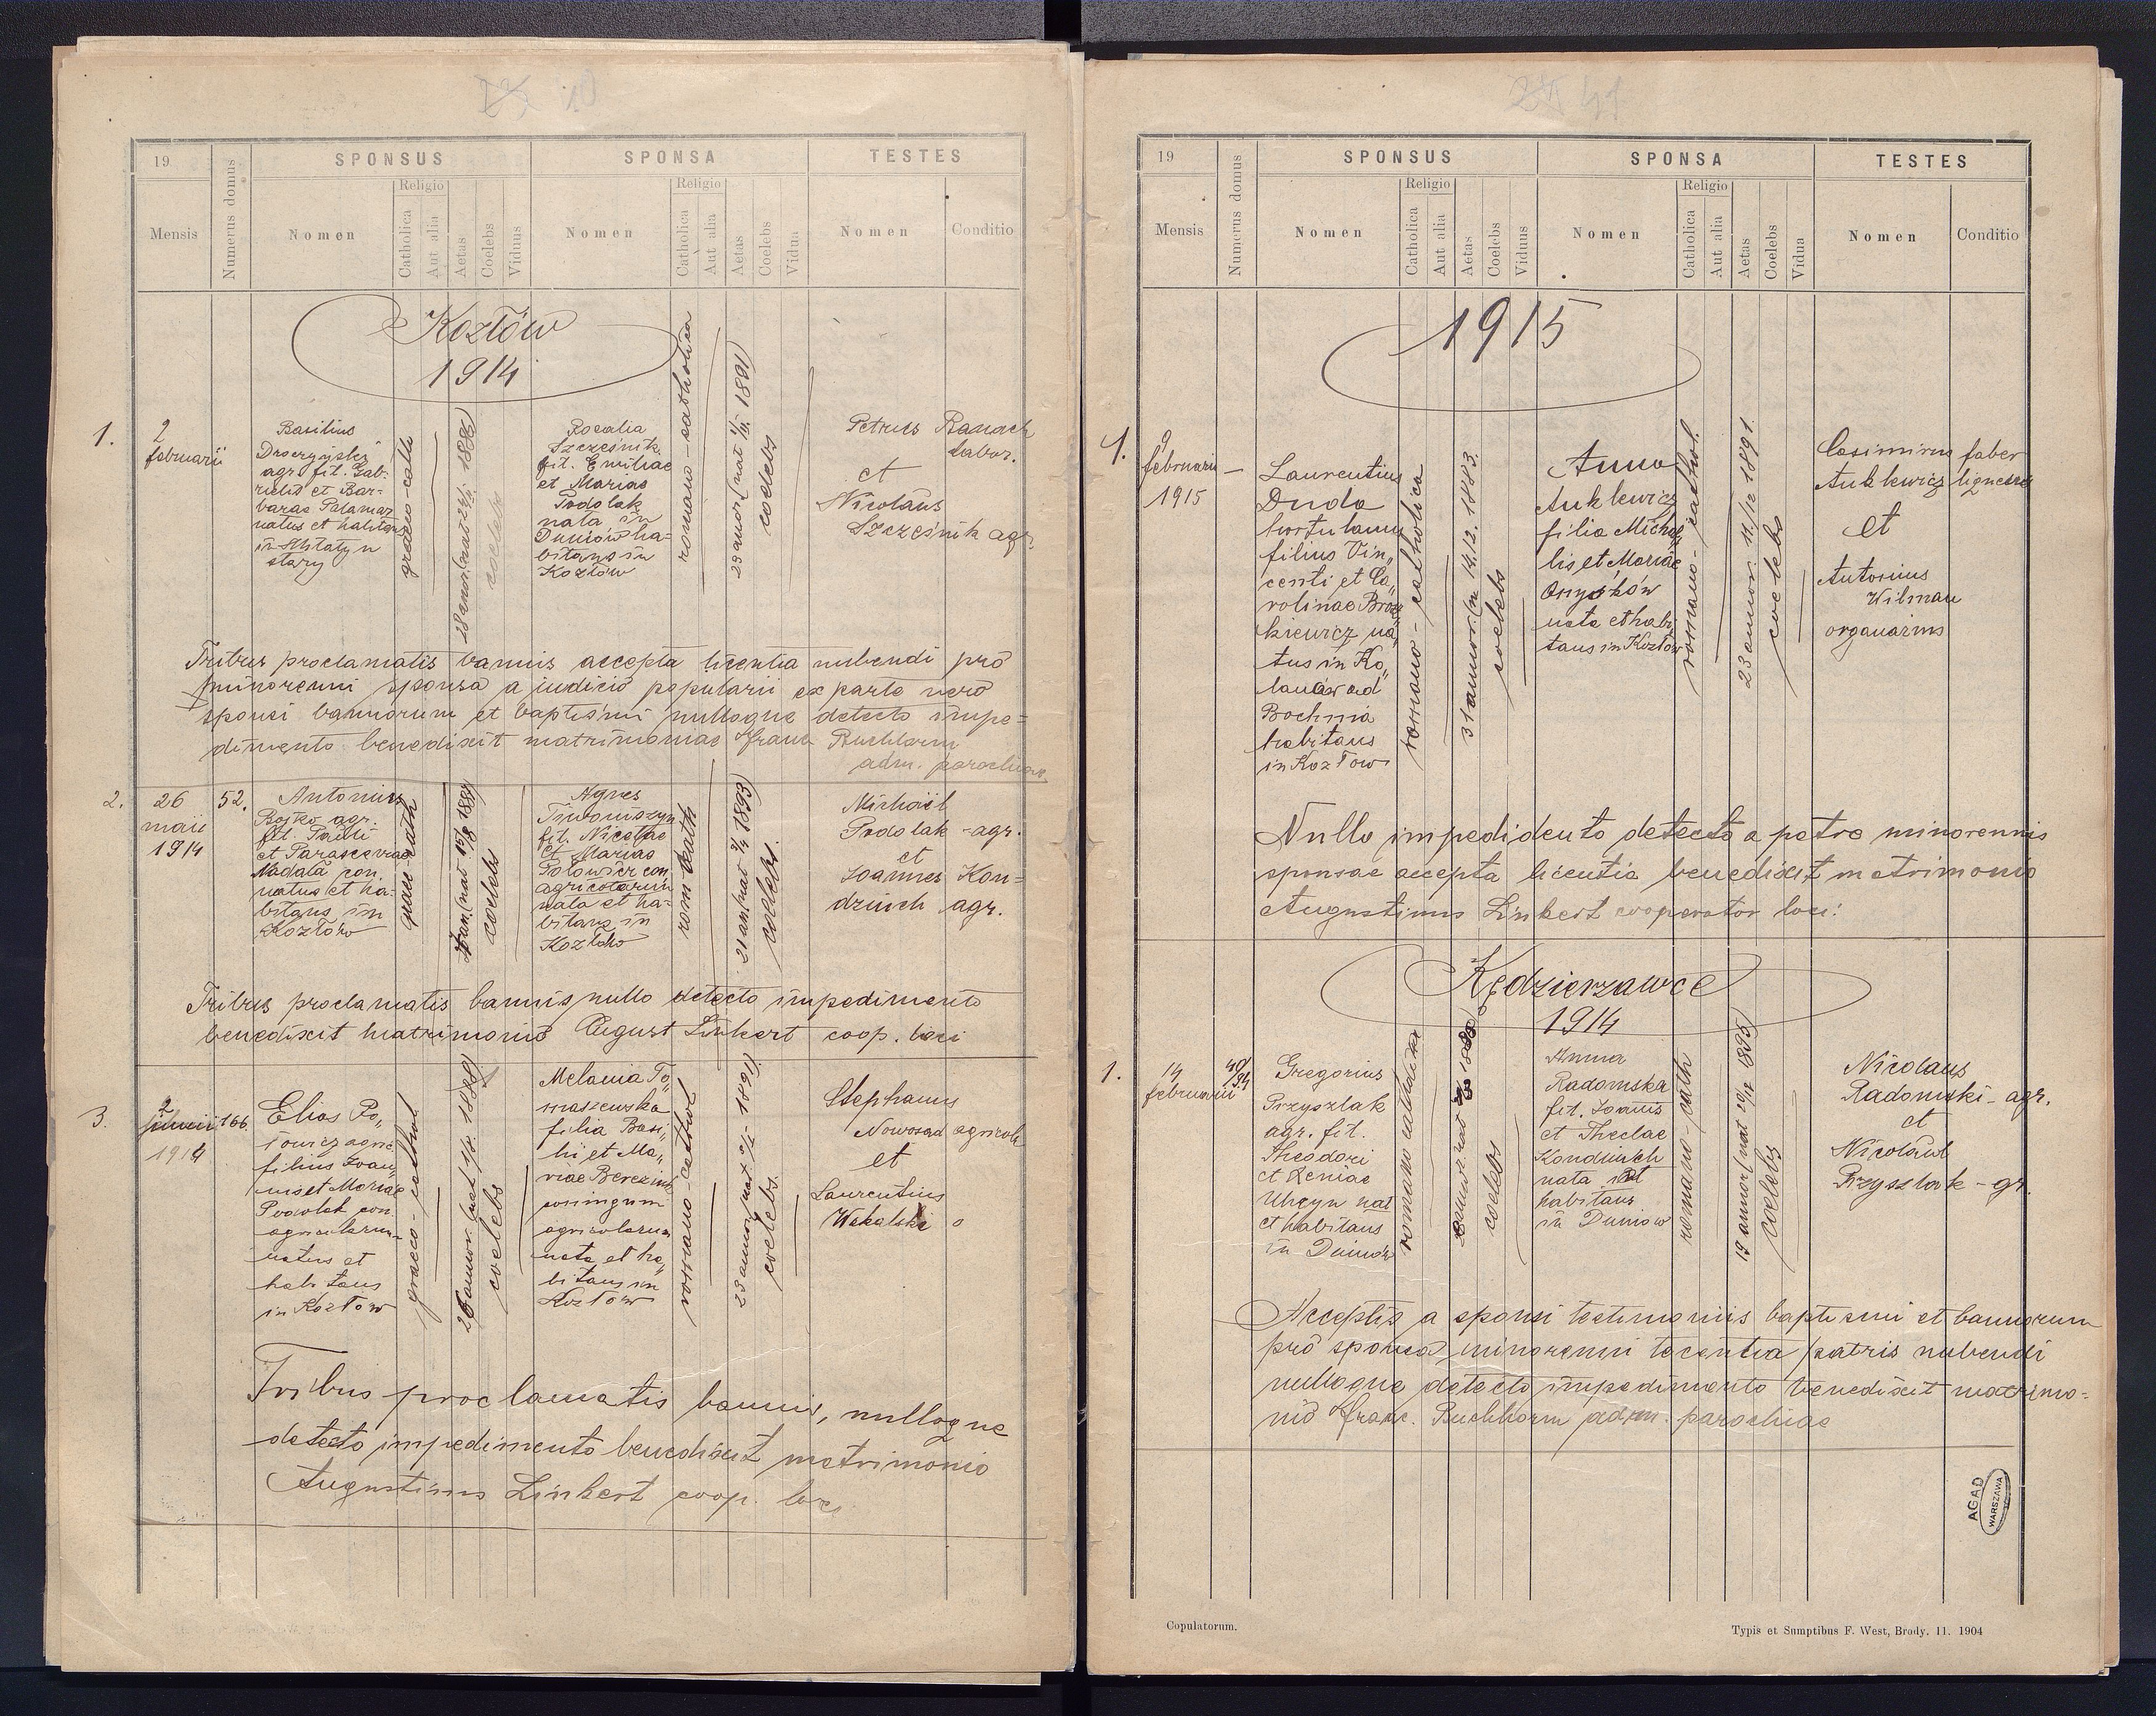 19
SPONSUS
SPONSA
TESTES
Mensis
Numerus domus
Nomen
Religio
Catholica
Aut alia
Aetas
Coelebs
Viduus
Nomen
Religio
Catholica
Aut alia
Aetas
Coelebs
Vidua
Nomen
Conditio
Kozłów
1914
1.
2
februarii
Basilius
agr. fil. Gab-
rielis et Bar-
barae Palamar
natus et habitans
in Milatyn
stary
graeco-cath
coelebs
Rosalia
Szcześnik
fil. Emiliae
et Mariae
Podolak
nata in
Duniów ha-
bitans in
Kozłów
romano-catholica
coelebs
Petrus Banach
labor.
et
Nicolaus
Szcześnik agr.
Tribus proclamatis bannis accepta licentia nubendi pro
minorenni sponsa a iudicio popularii ex parte vero
sponsi bannorum et baptismi nulloque detecto impe=
dimento benedixit matrimoniae Franc Buchhorn
adm. parochiae
2.
26
maii
1914
52.
Antonius
Bojko agr.
fil. Pauli
et Parascevrae
Madała con.
natus et ha-
bitans in
Kozłów
graec-cath
coelebs
Agnes
fil. Nicolae
et Mariae
Połowicz con.
agricolarum
nata et ha-
bitans in
Kozłów
rom cath
21 an (nat 3/4 1893)
coelebs.
Michaël
Podolak - agr.
et
Joannes Kon=
dziuch agr.
Tribus proclamatis bannis nullo detecto impedimento
benedixit matrimonio August Linkert coop. loci
3.
2
junii
1914
166.
Elias Po„
łowicz agric
filius Joan„
nis et Mariae
Podolak con.
agricolarum
natus et
habitans
in Kozłów
graeco-cathol
coelebs
Melania To„
maszewska
filia Basi„
lii et Ma„
riae Bereziuk
coningum
agricolarum
nata et ha„
bitans in
Kozłów
romano-cathol
coelebs.
Stephanus
Nowosad agricola
et
Laurentius
Wakalski
Tribus proclamatis bannis, nulloque
detecto impedimento benedixit matrimonio
Augustinus Linkert coop. loci
19
SPONSUS
SPONSA
TESTES
Mensis
Numerus domus
Nomen
Religio
Catholica
Aut alia
Aetas
Coelebs
Viduus
Nomen
Religio
Catholica
Aut alia
Aetas
Coelebs
Vidua
Nomen
Conditio
1915
1.
9
februarii
1915
Laurentius
Duda
hortulanus
filius Vin„
centi et Ca„
rolinae Broż
kiewicz na„
tus in Ko„
lanów ad
Bochnia
habitans
in Kozłów
romano-catholica
31 annor. (n. 14.12. 1883.
coelebs
Anna
Aukkewicz
filia Michae
lis et Mariae
Onyśków
nata et habi
tans in Kozłów
romano-cathol.
23 annor. 11./12 1891.
coelebs
Casimirus faber
Aukkewicz lignarii
et
Antonius
Wilman
organarius
Nullo impedidento detecto a patre minorennis
sponsae accepta licentia benedixit matrimonio
Augustinus Linkert cooperator loci.
Kędzierzawce
1914
1.
14
februarii
40/94
Gregorius
Przyszlak
agr. fil.
Theodori
et Xeniae
Uhryn nat
et habitans
in Duniów
romano catholica
coelebs
Anna
Radomska
fil. Joannis
et Theclae
Kondziuch
nata et
habitans
in Duniów
romano-cath
coelebs
Nicolaus
Radomski - agr.
et
Nicolaus
Przyszlak - gr.
Acceptis a sponsi testimoniis baptismi et bannorum
pro sponsa minorenni licentia patris nubendi
nulloque detecto impedimento benedixit matrimo=
nio Franc. Buchhorn adm. parochiae
AGAD
WARSZAWA
Copulatorum.
Typis et Sumptibus F. West, Brody. 11. 1904